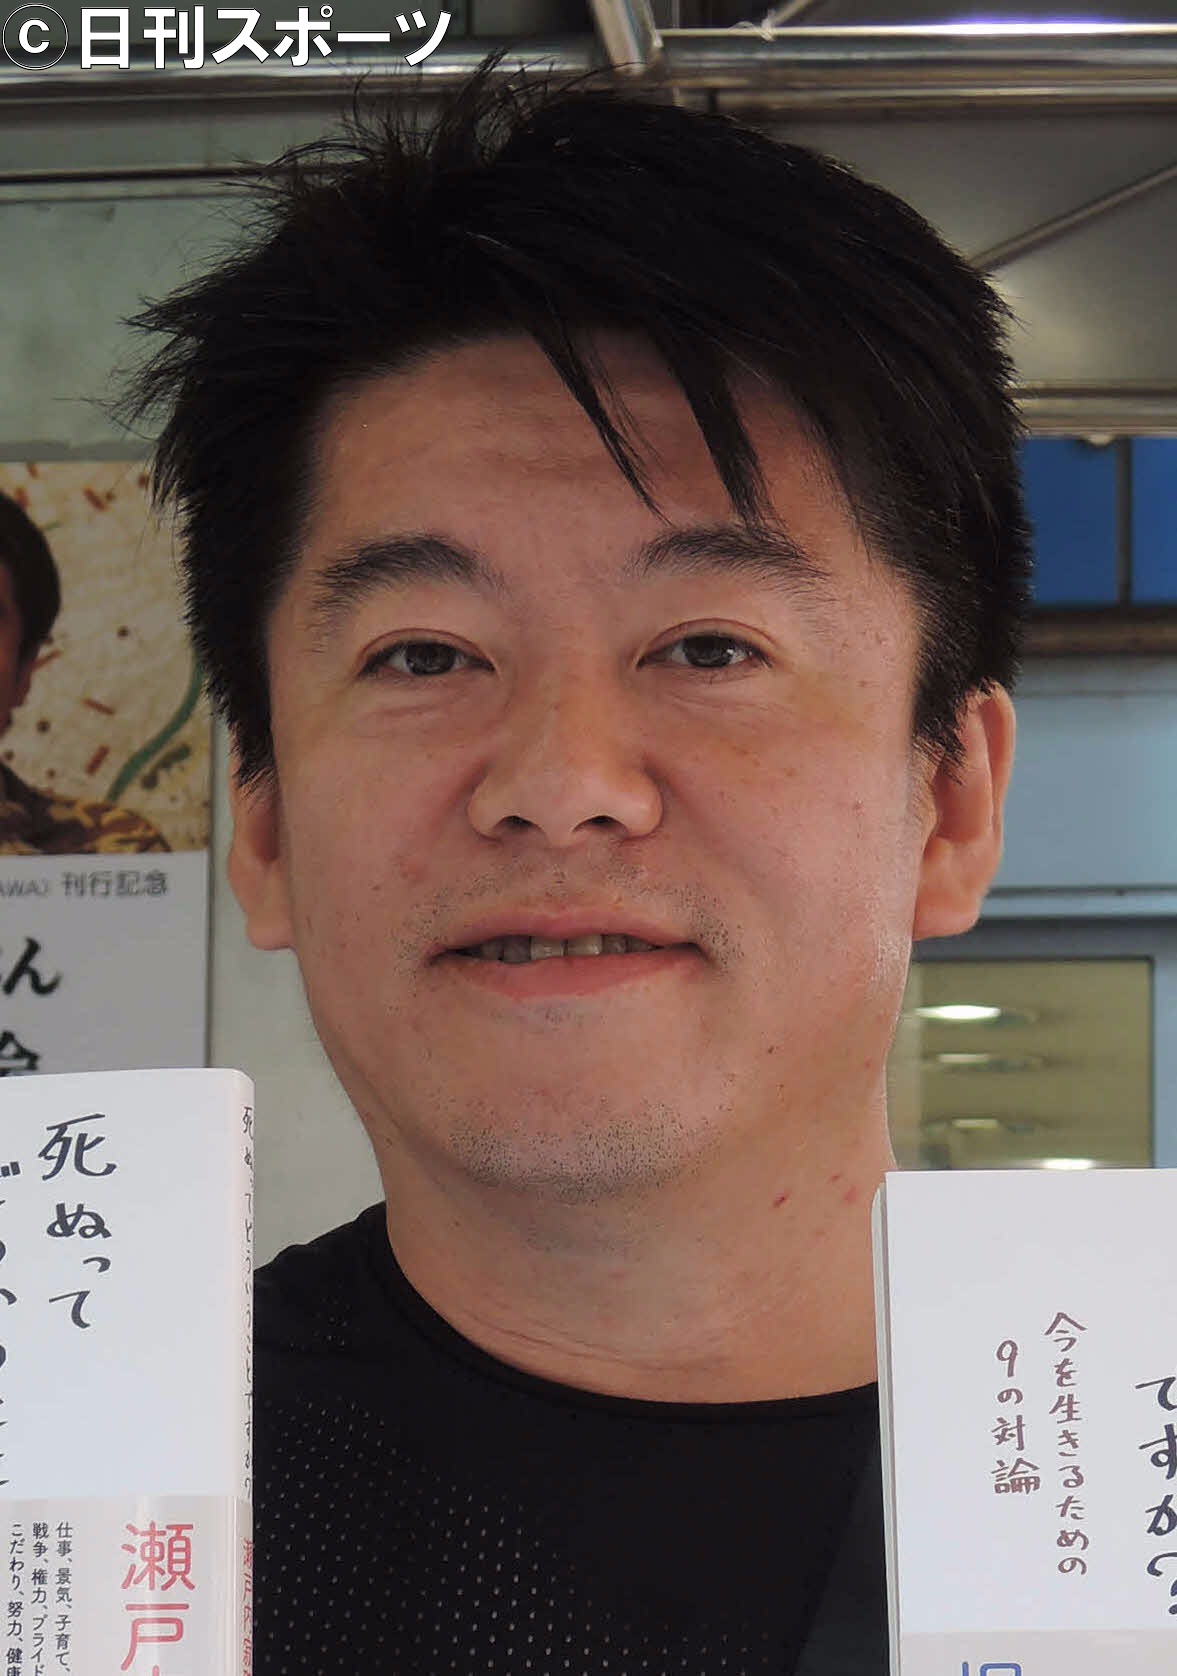 ©日刊スポーツ
AWA）刊行記念
死ぬって
死ぬってどういうことですか？
瀬戸
仕事、景気、子育て、
戦争、権力、プライド
こだわり、努力、健康
ですか？
今を生きるための
9の対論